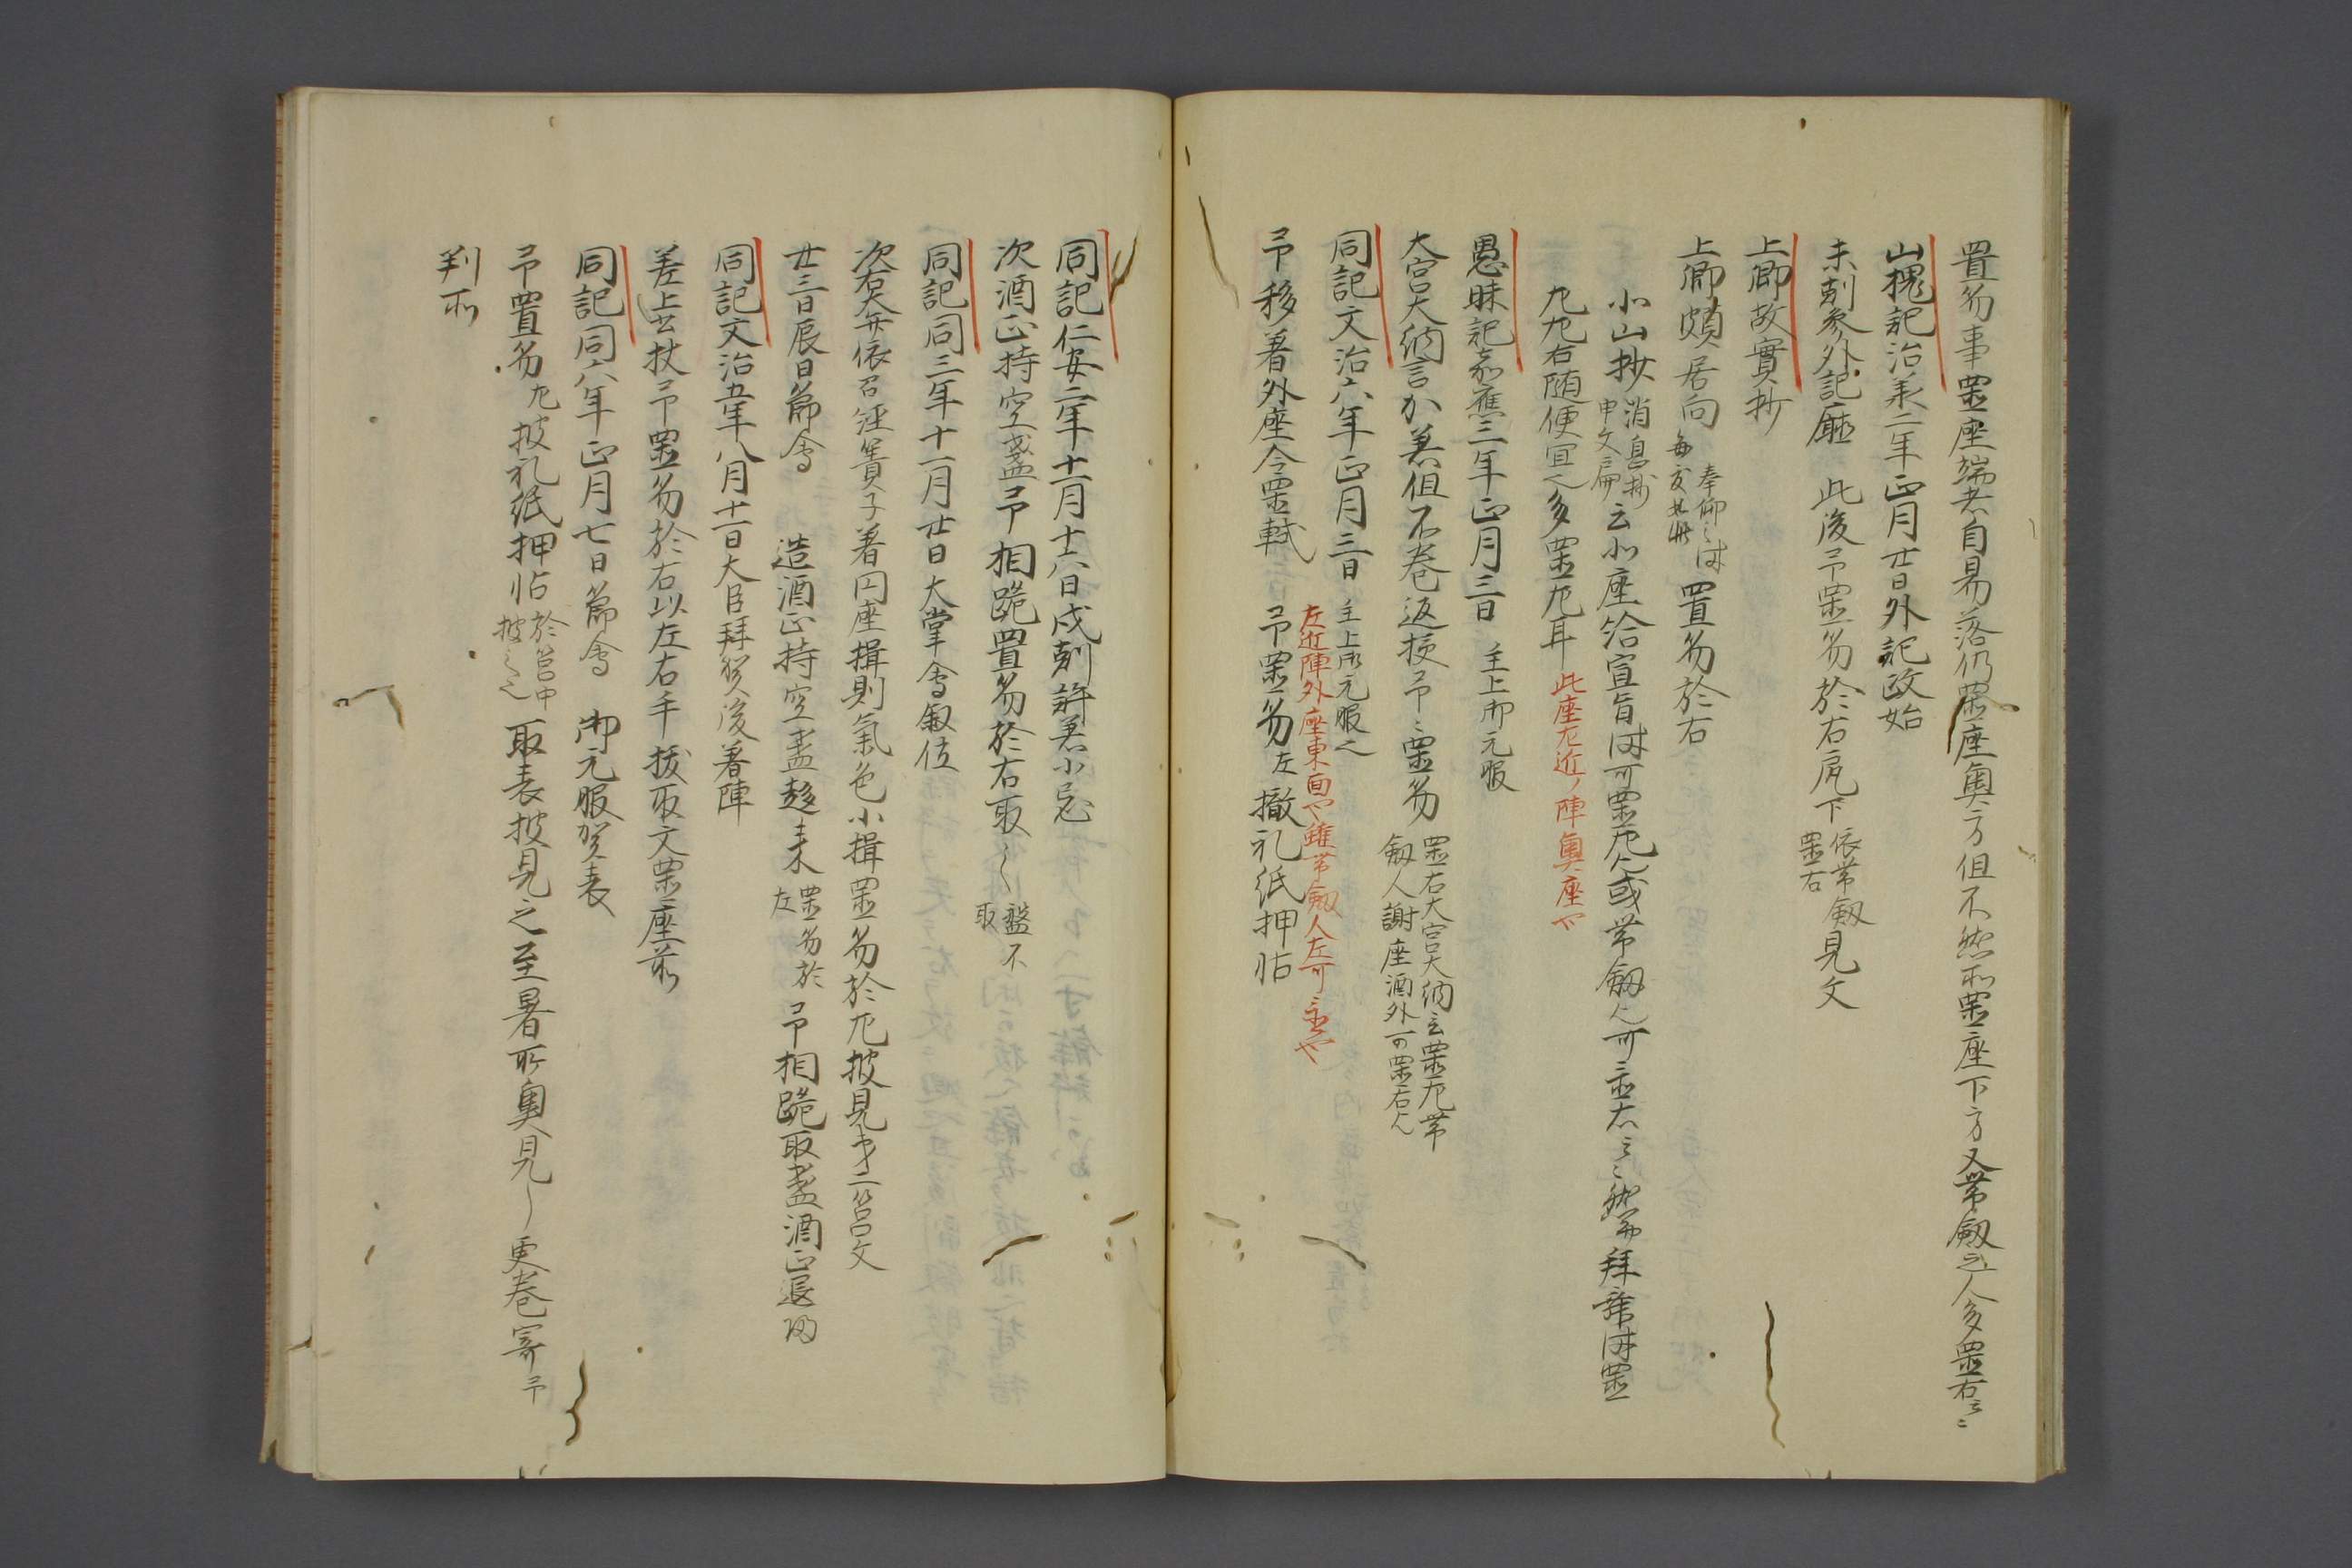 置笏事置座端者自易落仍置座奥方但不然而置座下方又帯釼之人多置右云々
山槐記治承二年正月廿日外記政始
未剋参外記廰 此後予置笏於右尻下依帯釼置右見文
上卿故實抄
上卿頗居向奉仰之時毎度如此置笏於右
小山抄消息抄申文扁云北座給宣旨時可置尤也或帯釼人可置右云々然而拝舞時置
左右随便宜也多置左耳此座左近ノ陣奥座也
愚昧記嘉應三年正月三日 主上御元服
大宮大納言加署但不巻返授予々置笏置右大宮大納言置左帯釼人謝座酒外可置右也
同記文治六年正月三日主上御元服也
左近陣外座東面也雖帯釼人左可置也
予移着外座令置軾 予置笏左撤礼紙押帖
同記仁安二年十一月十六日戌剋許着小忌
次酒正持空盞予相跪置笏於右取之盤不取
同記同三年十一月廿日大掌會叙位
次右大弁依召経簀子着円座揖則氣色小揖置笏於左披見第二筥文
廿三日辰日節會 造酒正持空盞趍来置笏於左予相跪取盞酒正退帰
同記文治五年八月十一日大臣拝賀後着陣
差上書杖予置笏於右以左右手抜取文置座前
同記同六年正月七日節會 御元服賀表
予置笏左披礼紙押帖於筥中披之也取表披見之至署所奥見之更巻寄予
判所